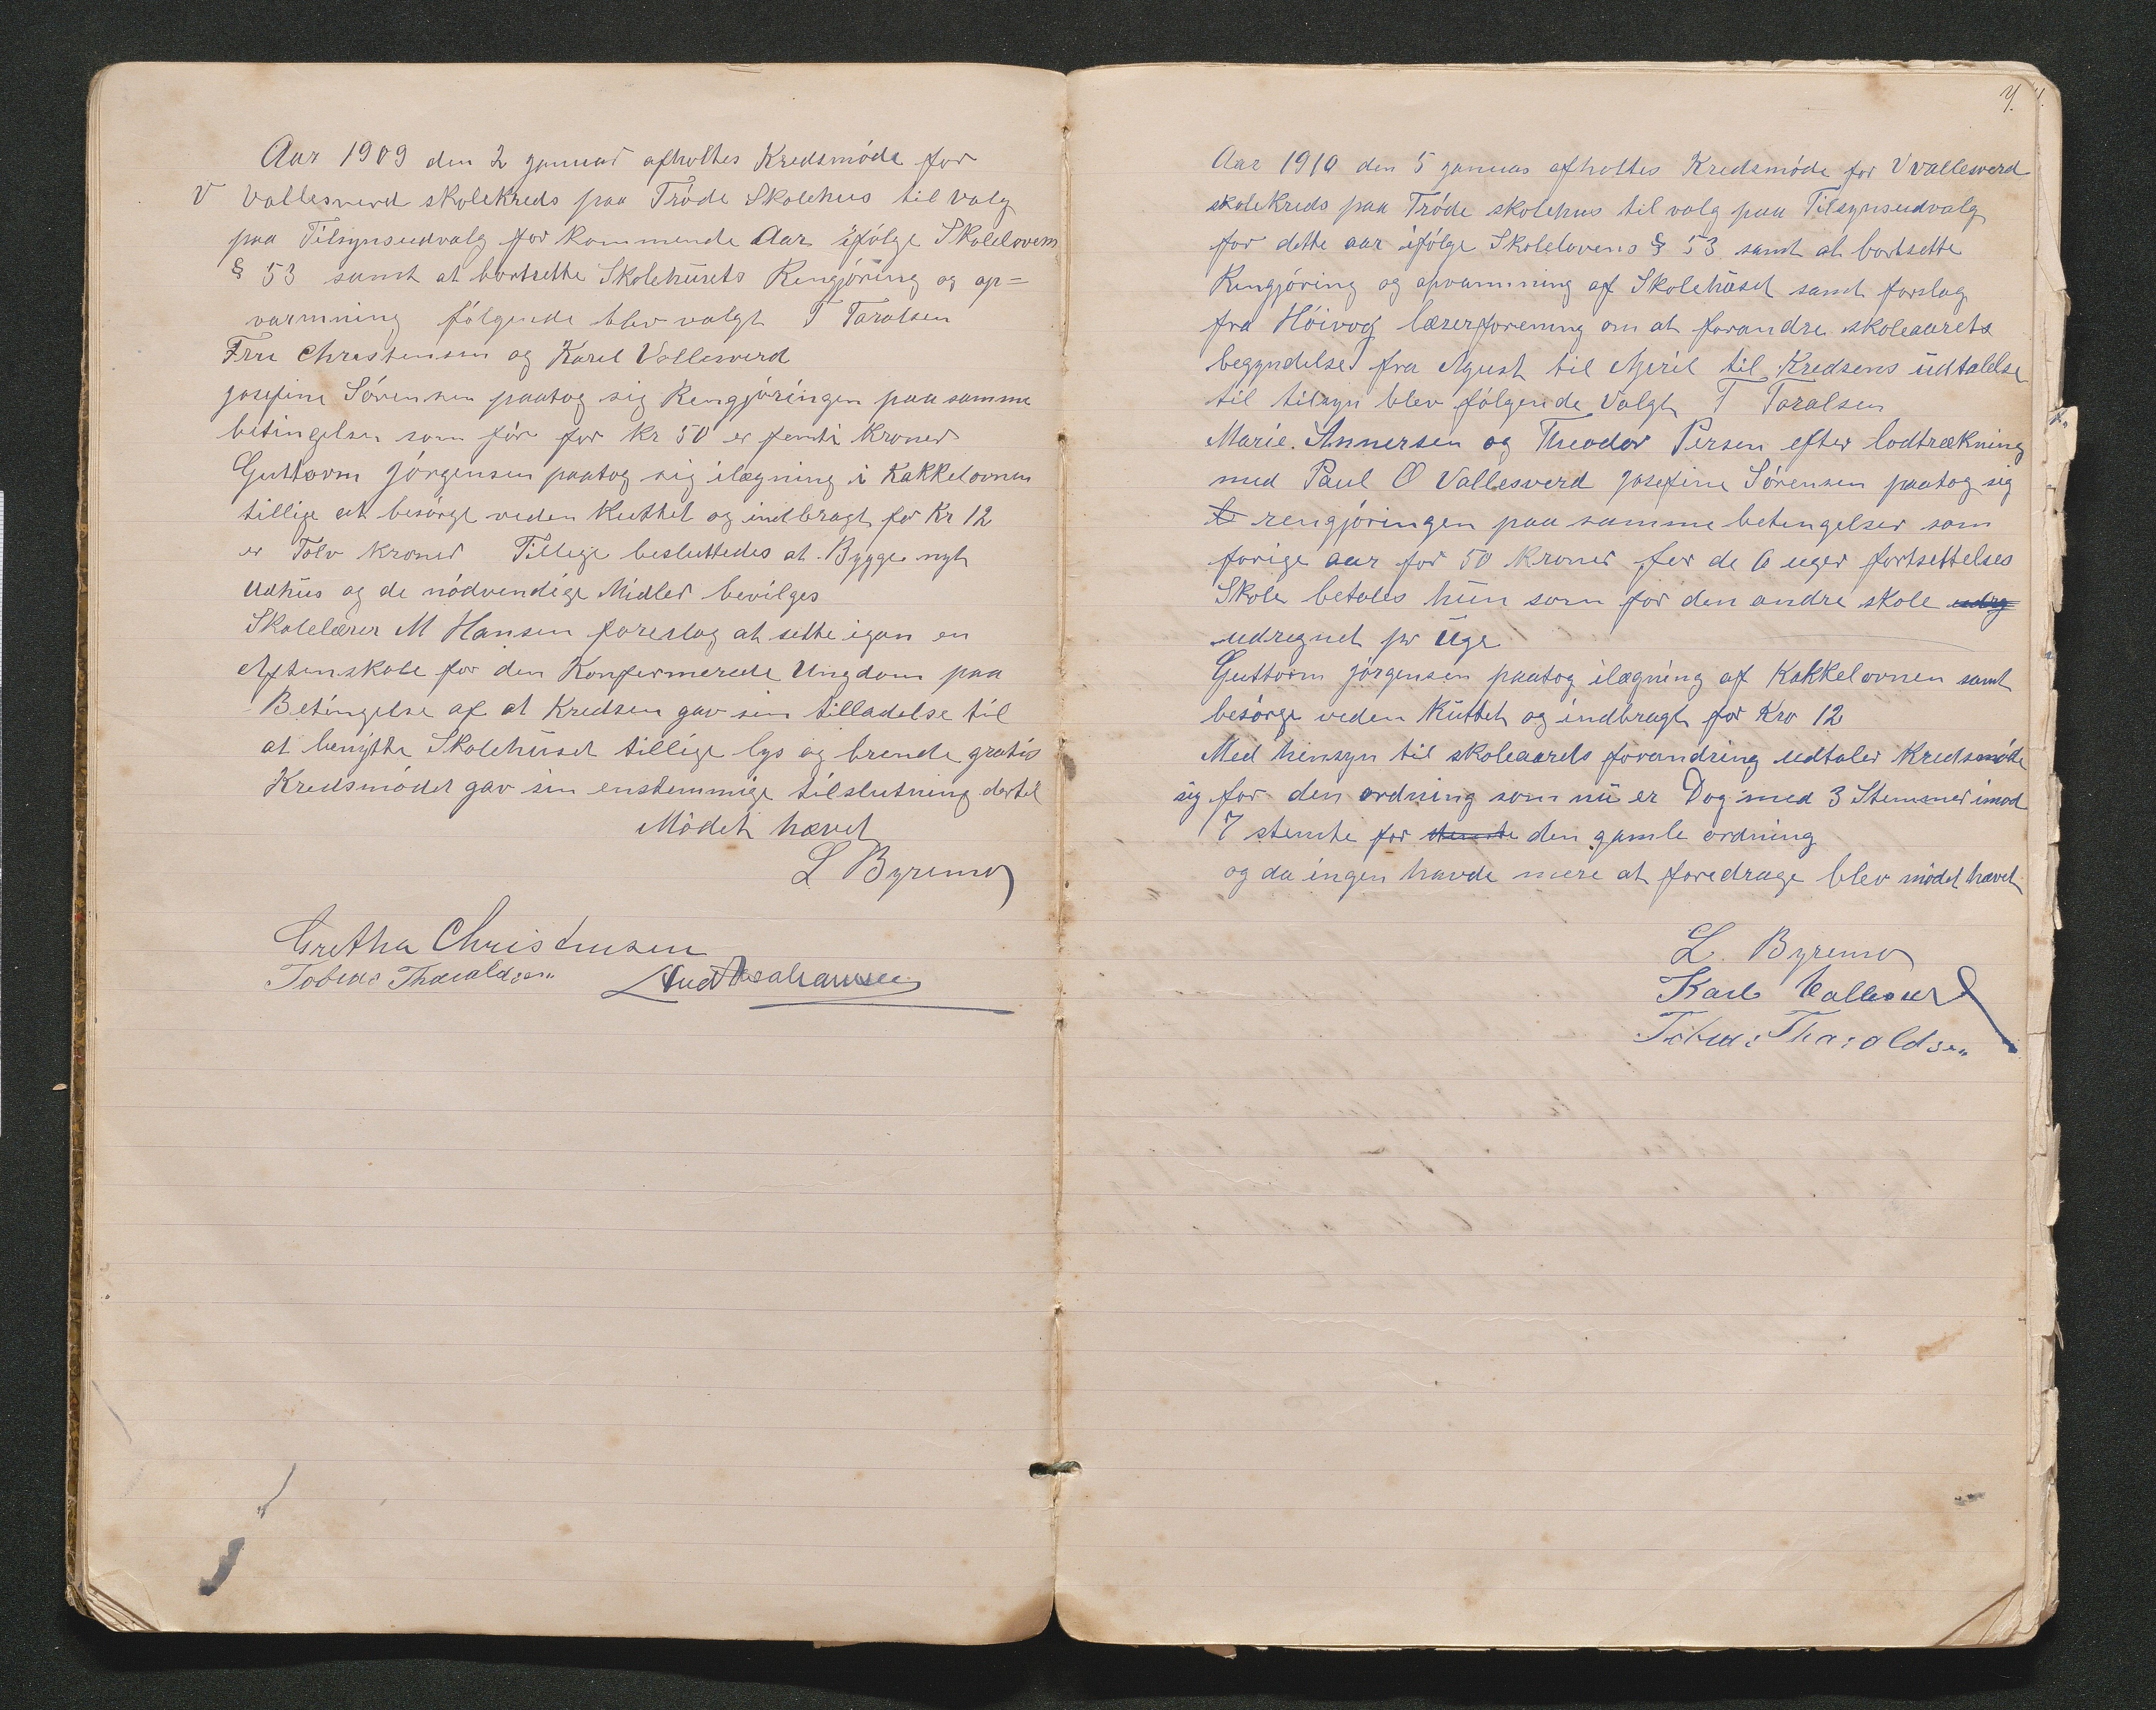 Aar 1909 den 2 januar afholtes Kredsmöde for
V Vallesverd skolekreds paa Tröde Skolehus til valg
paa Tilsynsudvalg for kommende Aar ifölge Skolelovens
§ 53 samt at bortsette Skolehusets Rengjöring og op=
varmning fölgende blev valgt T Taralsen
Fru Christensen og Karel Vallesverd
Josefine Sörensen paatog sig Rengjöringen paa samme
betingelser som för for Kr 50 er femti Kroner
Guttorm Jörgensen paatog sig ilægning i Kakkelovnen
tillige at besörge veden Kuttet og indbragt for Kr 12
er Tolv Kroner Tillige besluttedes at Bygge nyt
Udhus og de nödvendige Midler bevilges
Skolelærer M Hansen foreslog at sette igan en
Aftenskole for den Konfermerede Ungdom paa
Betingelse af at Kredsen gav sin tilladelse til
at benytte Skolehuset tillige lys og brende gratis
Kredsmödet gav sin enstemmige tilslutning dertil
Mödet hævet
L Byremo
Gretha Christensen
Tobias Tharaldsen And Abrahamsen
4.
Aar 1910 den 5 januar afholtes Kredsmöde for V Vallesverd
skolekreds paa Tröde skolehus til valg paa Tilsynsudvalg
for dette aar ifölge Skolelovens § 53 samt at bortsette
Rengjöring og opvarmning af Skolehuset samt forslag
fra Höivog lærerforening om at forandre skoleaarets
begyndelse fra Agust til April til Kredsens udtalelse
til tilsyn blev fölgende Valgt T Taralsen
Marie. Annersen og Theodor Persen efter lodtrækning
med Paul O Vallesverd Josefine Sörensen paatog sig
rengjöringen paa samme betingelser som
forige aar for 50 Kroner for de 6 uger fortsettelses
Skole betales hun som for den andre skole udrg
udregnet pr Uge
Guttorm Jörgensen paatog ilægning af Kakkelovnen samt
besörge veden Kuttet og indbragt for Kro 12
Med hensyn til skoleaarets forandring udtaler Kredsmöde
sig for den ordning som nu er Dog med 3 Stemmer imod
7 stemte for stemte den gamle ordning
og da ingen havde mere at foredrage blev mödet hævet
L. Byremo
Karl Vallesverd
Tobias Tharaldsen